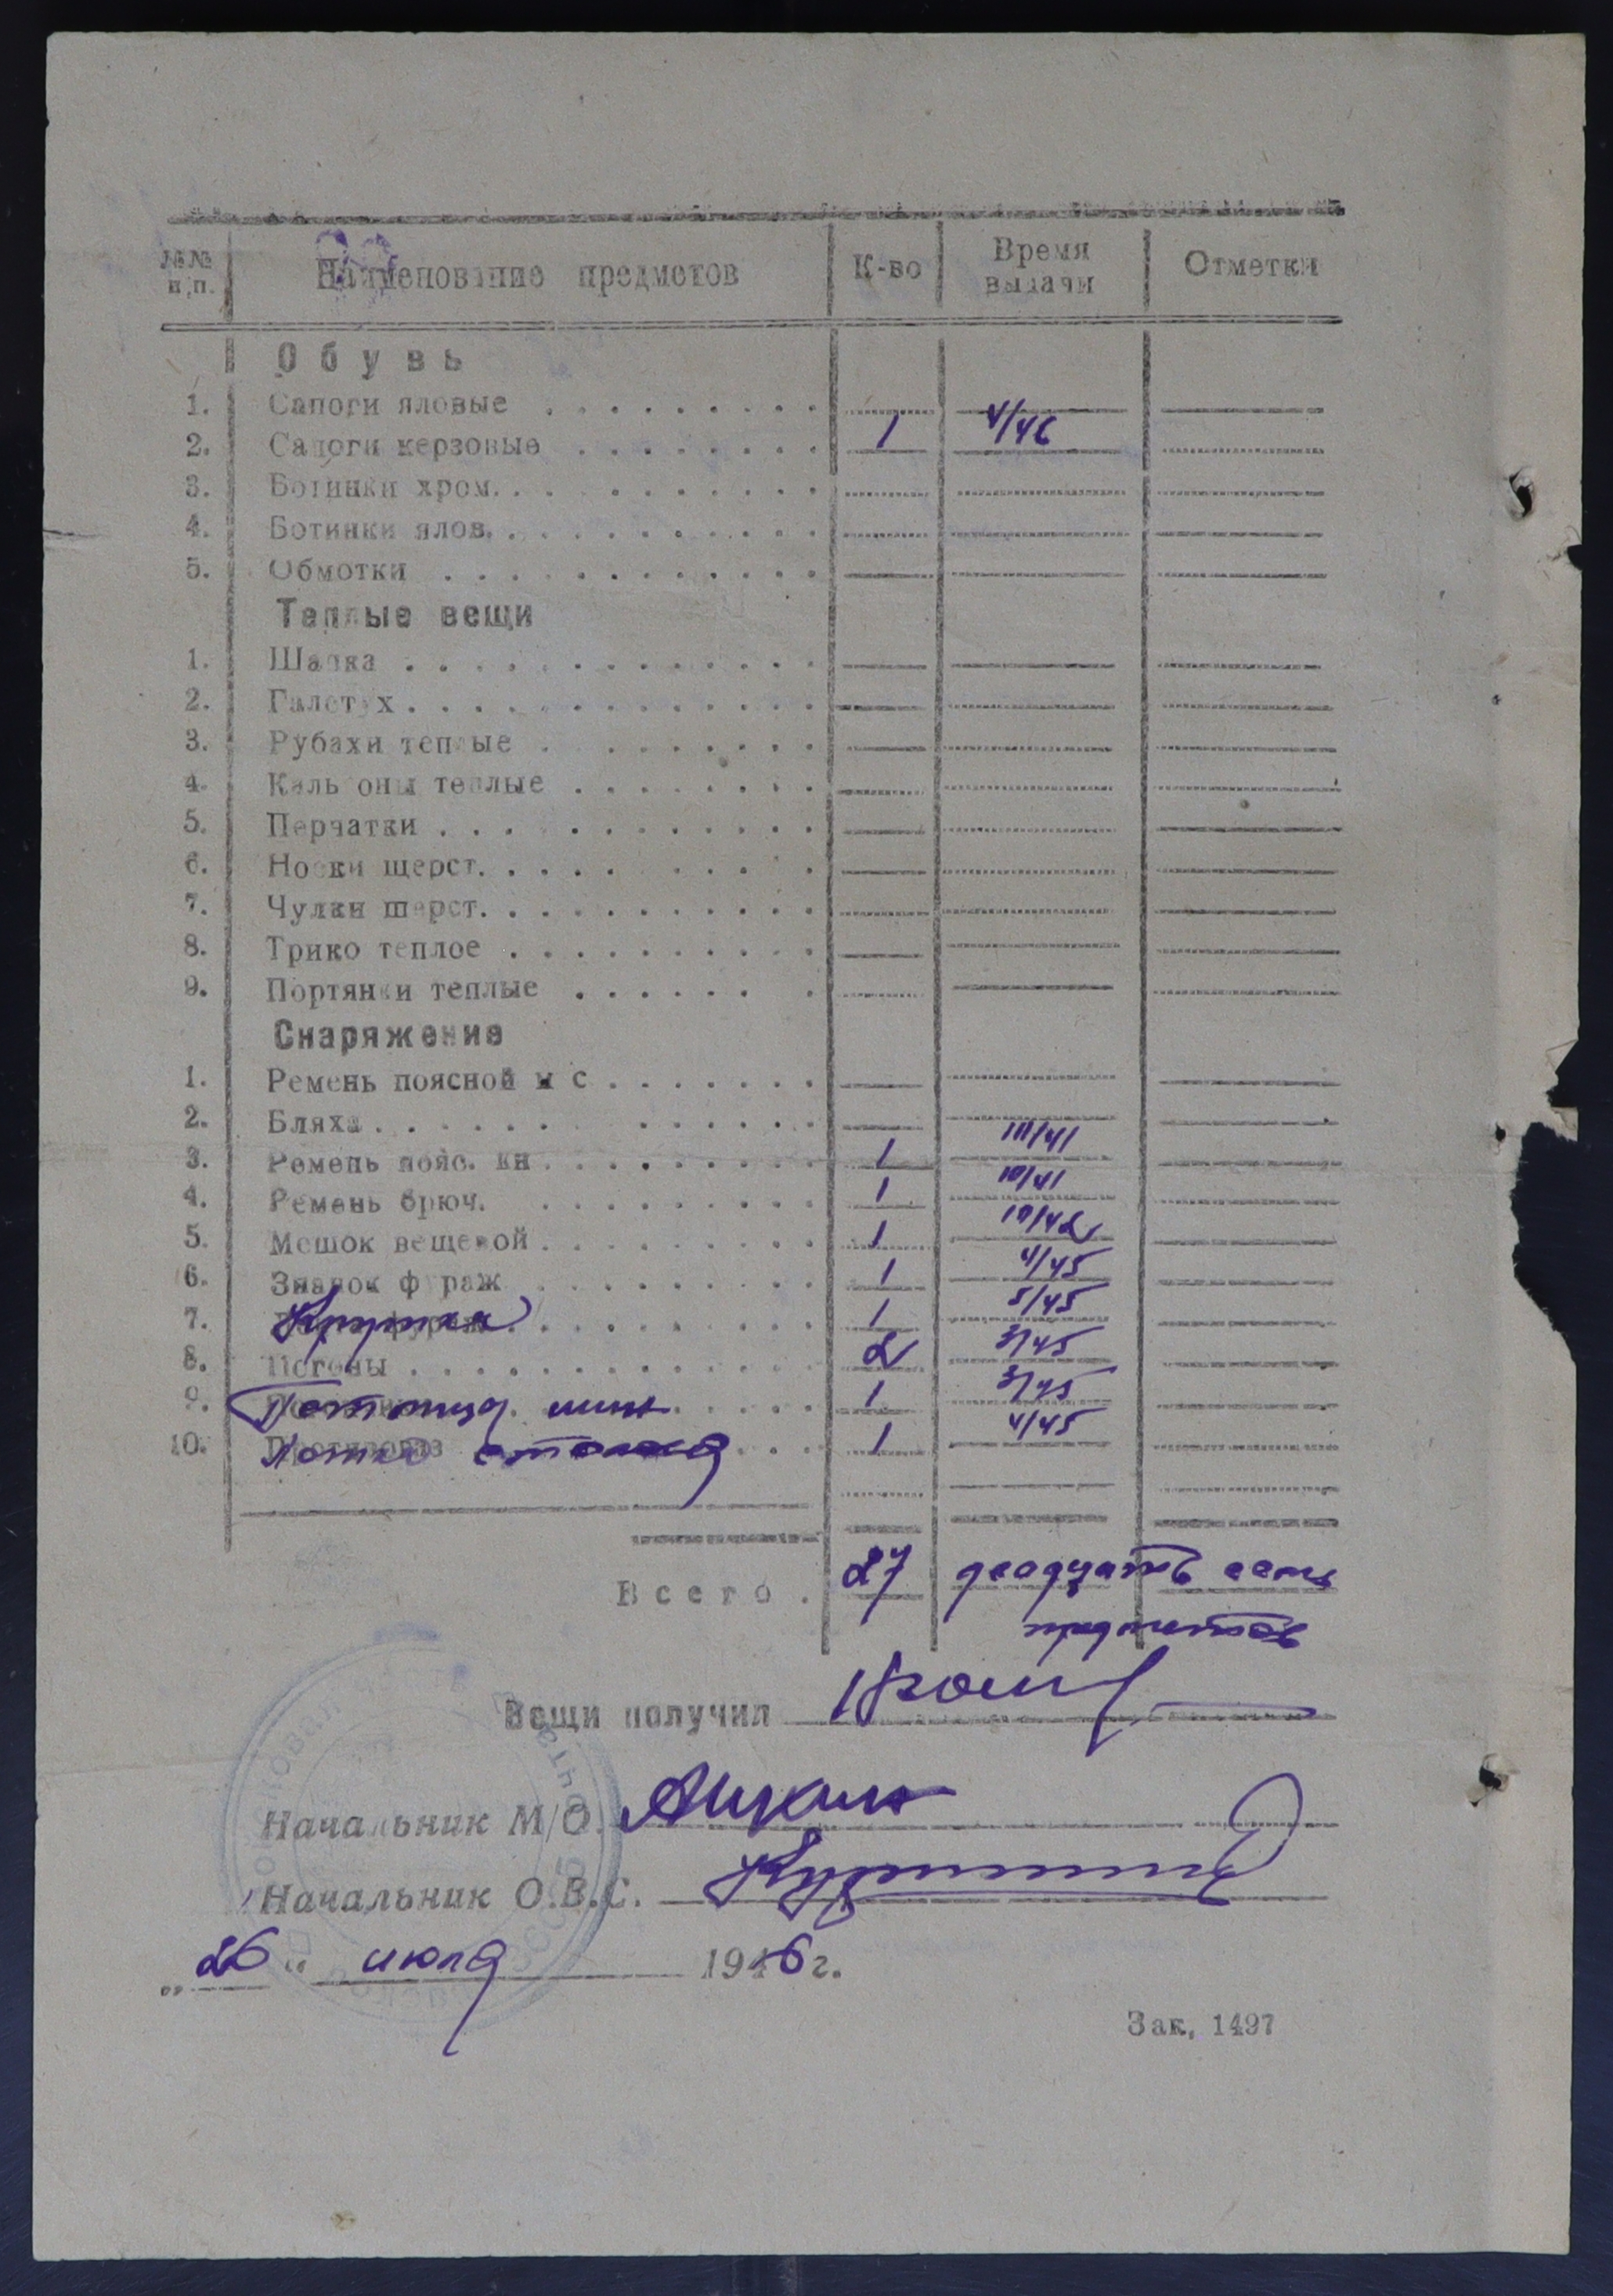 №№ п/п. Наименование предметов К-во Время выдачи Отметки
Обувь
1. Сапоги яловые
2. Сапоги керзовые 1 4/46
3. Ботинки хром.
4. Ботинки ялов.
5. Обмотки
Теплые вещи
1. Шапка
2. Галстух
3. Рубахи теплые
4. Кальсоны теплые
5. Перчатки
6. Носки шерст.
7. Чулки шерст.
8. Трико теплое
9. Портянки теплые
Снаряжение
1. Ремень поясной н с
2. Бляха
3. Ремень пояс. кн 1 10/41
4. Ремень брюч. 1 10/41
5. Мешок вещевой 1 10/42
6. Значок фураж 1 4/45
7. Кружка 1 5/45
8. Погоны 2 3/45
9. 1 3/45
10. 1 4/45
Всего 27 двадцать семь
предметов
Вещи получил
Начальник М/О.
Начальник О.В.С.
„26" июля 1946 г.
Зак. 1497